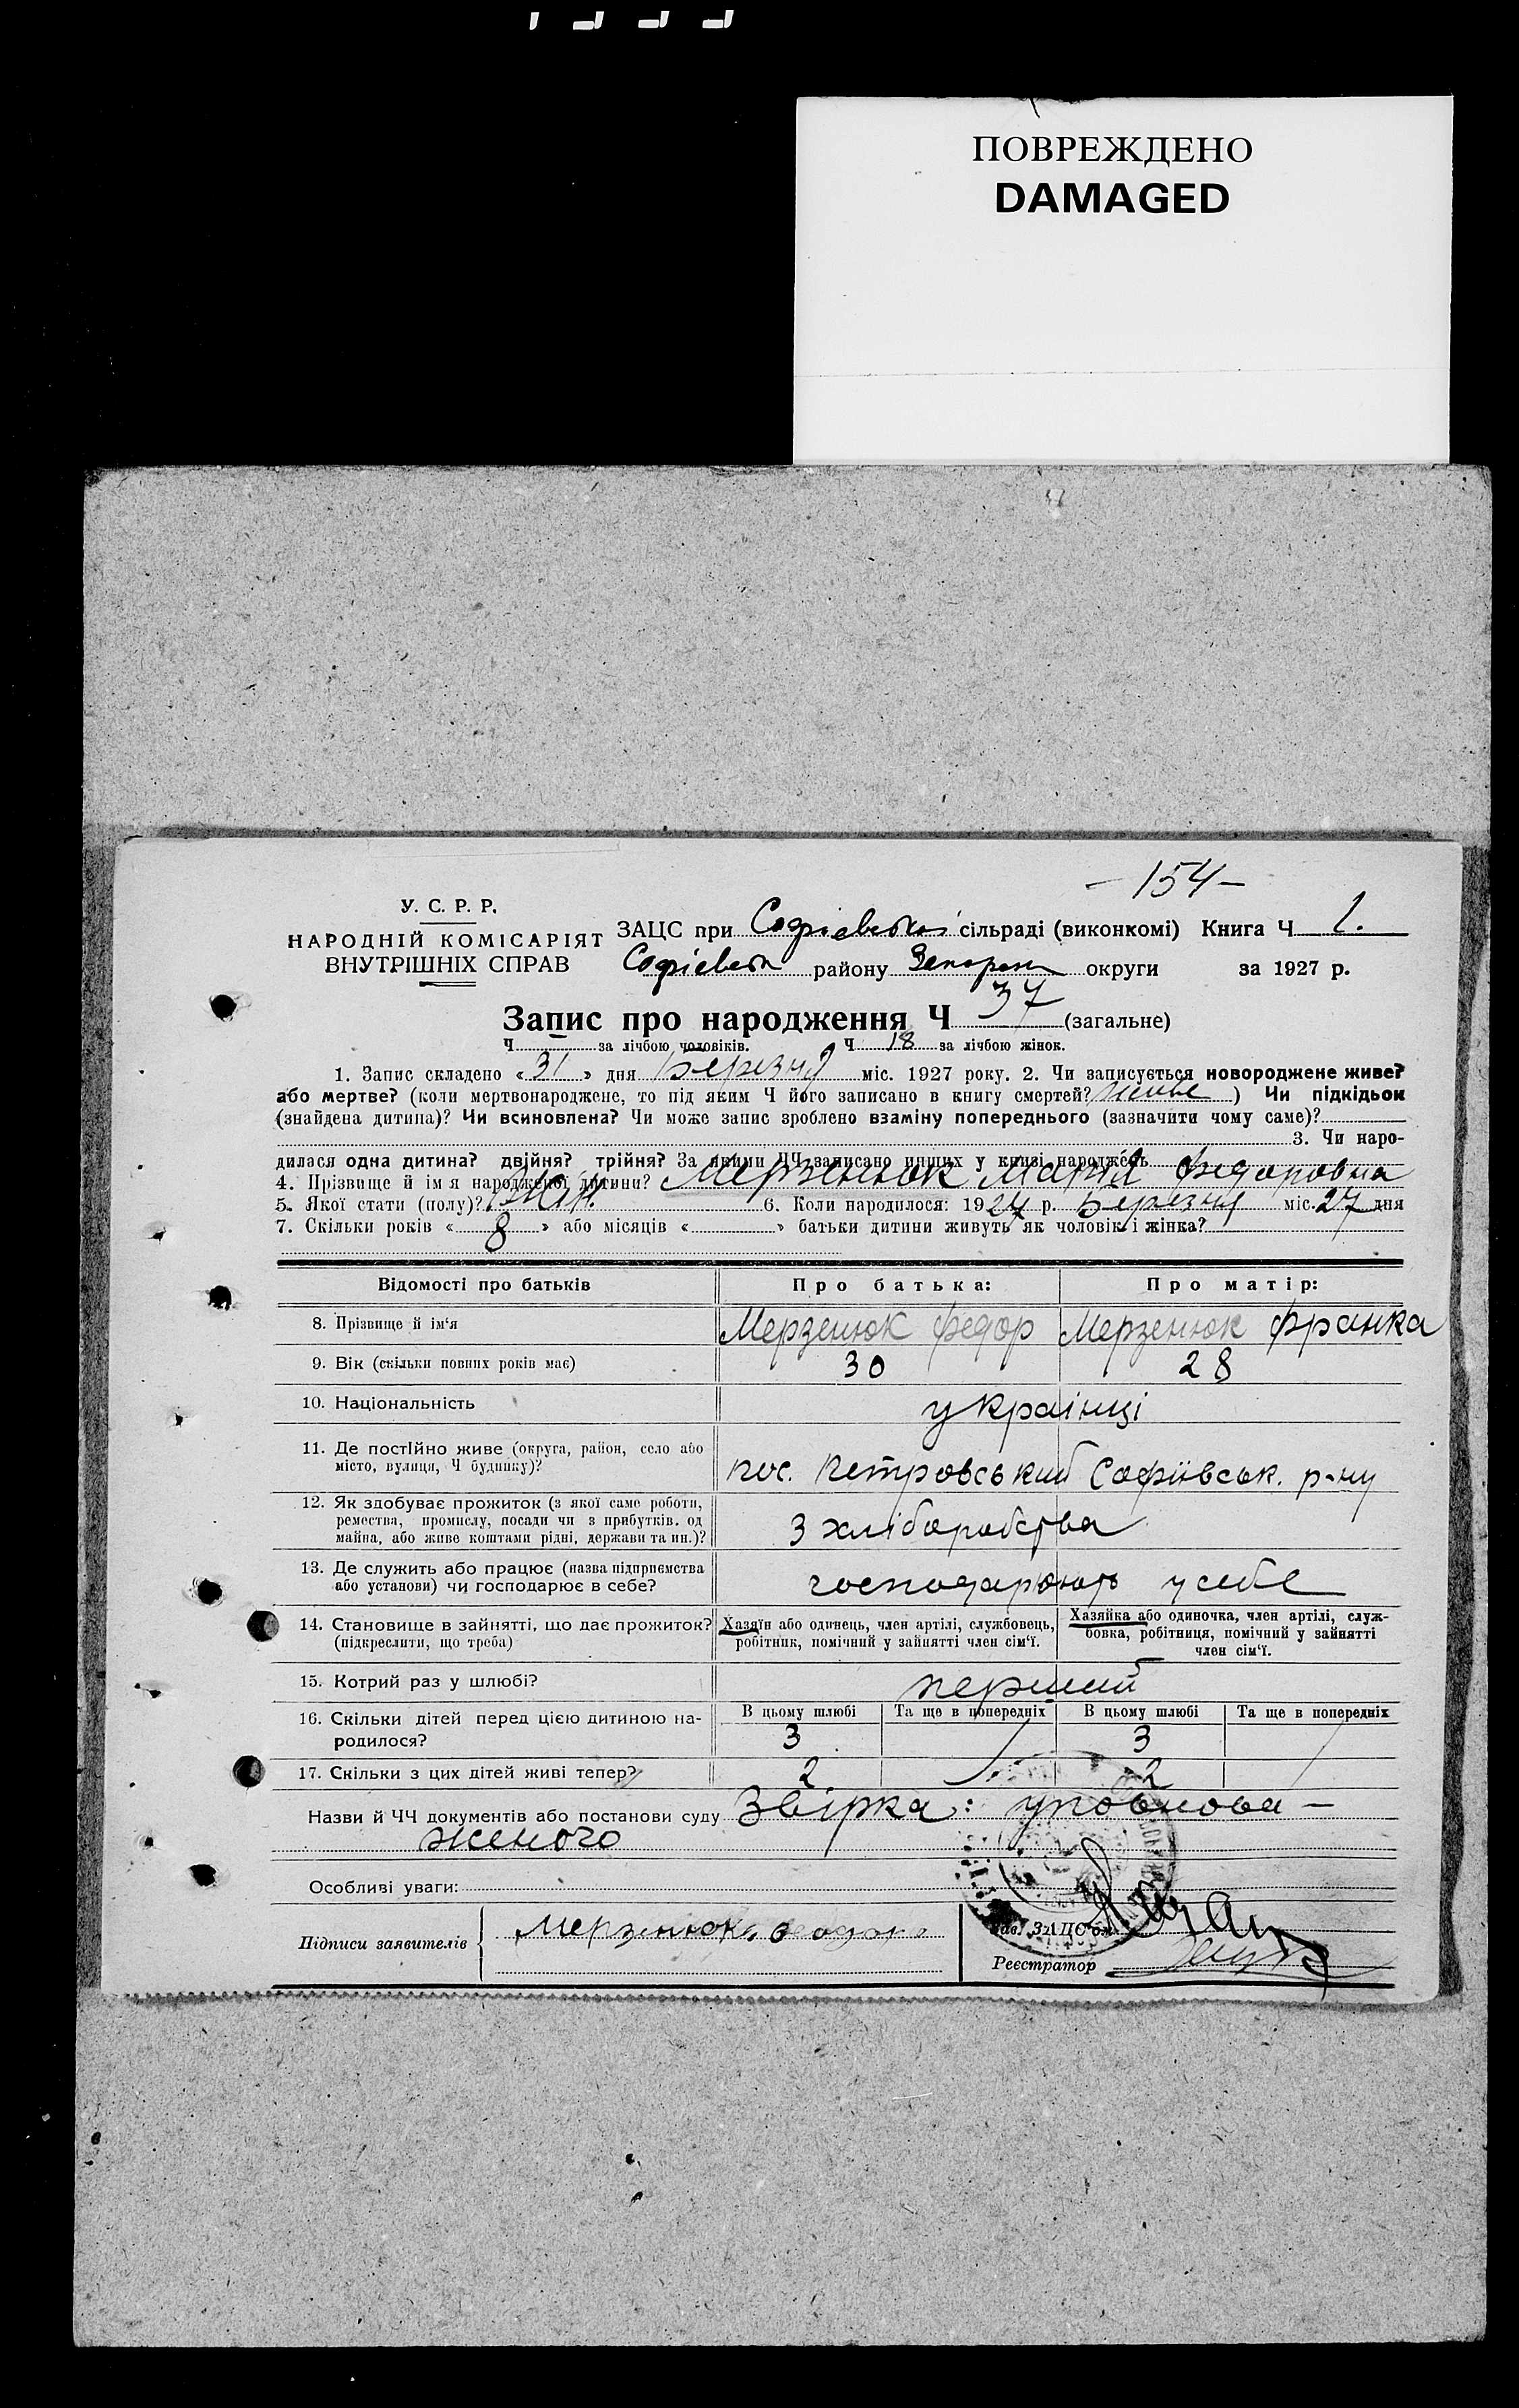 ПОВРЕЖДЕНО
DAMAGED
- 154 -
У. С. Р. Р.
НАРОДНІЙ КОМІСАРІЯТ
ВНУТРІШНІХ СПРАВ
ЗАЦС при Софієвській сільраді (виконкомі) Книга Ч 1.
Софієвськ району Запорізьк округи за 1927 р.
Запис про народження Ч 37 (загальне)
Ч — за лічбою чоловіків. Ч 18 за лічбою жінок.
1. Запис складено «31» дня Березня міс. 1927 року. 2. Чи записується новороджене живе?
або мертве? (коли мертвонароджене, то під яким Ч його записано в книгу смертей? живе) Чи підкідьок
(знайдена дитина)? Чи всиновлена? Чи може запис зроблено взаміну попереднього (зазначити чому саме)?
3. Чи наро-
дилася одна дитина? двійня? трійня? За якими ЧЧ записано инших у книзі народжень
4. Прізвище й ім'я народженої дитини? Мерзенюк Марія Федоровна
5. Якої стати (полу)? Жін. 6. Коли народилося: 1927 р. Березня міс. 27 дня
7. Скільки років «8» або місяців « » батьки дитини живуть як чоловік і жінка?
Відомості про батьків Про батька: Про матір:
8. Прізвище й ім'я Мерзенюк Федор Мерзенюк Франка
9. Вік (скільки повних років має) 30 28
10. Національність українці
11. Де постійно живе (округа, район, село або
місто, вулиця, Ч будинку)? пос. Петровський Софіівськ. р-ну
12. Як здобуває прожиток (з якої саме роботи,
ремества, промислу, посади чи з прибутків. од
майна, або живе коштами рідні, держави та ин.)? З хліборобства
13. Де служить або працює (назва підприємства
або установи) чи господарює в себе? господарюють у себе
14. Становище в зайнятті, що дає прожиток?
(підкреслити, що треба)
Хазяїн або одинець, член артілі, службовець,
робітник, помічний у зайнятті член сім'ї.
Хазяйка або одиночка, член артілі, служ-
бовка, робітниця, помічний у зайнятті
член сім'ї.
15. Котрий раз у шлюбі? перший
16. Скільки дітей перед цією дитиною на-
родилося?
В цьому шлюбі Та ще в попередніх В цьому шлюбі Та ще в попередніх
3 3
17. Скільки з цих дітей живі тепер? 2 2
Назви й ЧЧ документів або постанови суду Звірка: уповнова-
женого
Особливі уваги:
Підписи заявителів Мерзенюк
Зав. ЗАЦС'ом
Реєстратор